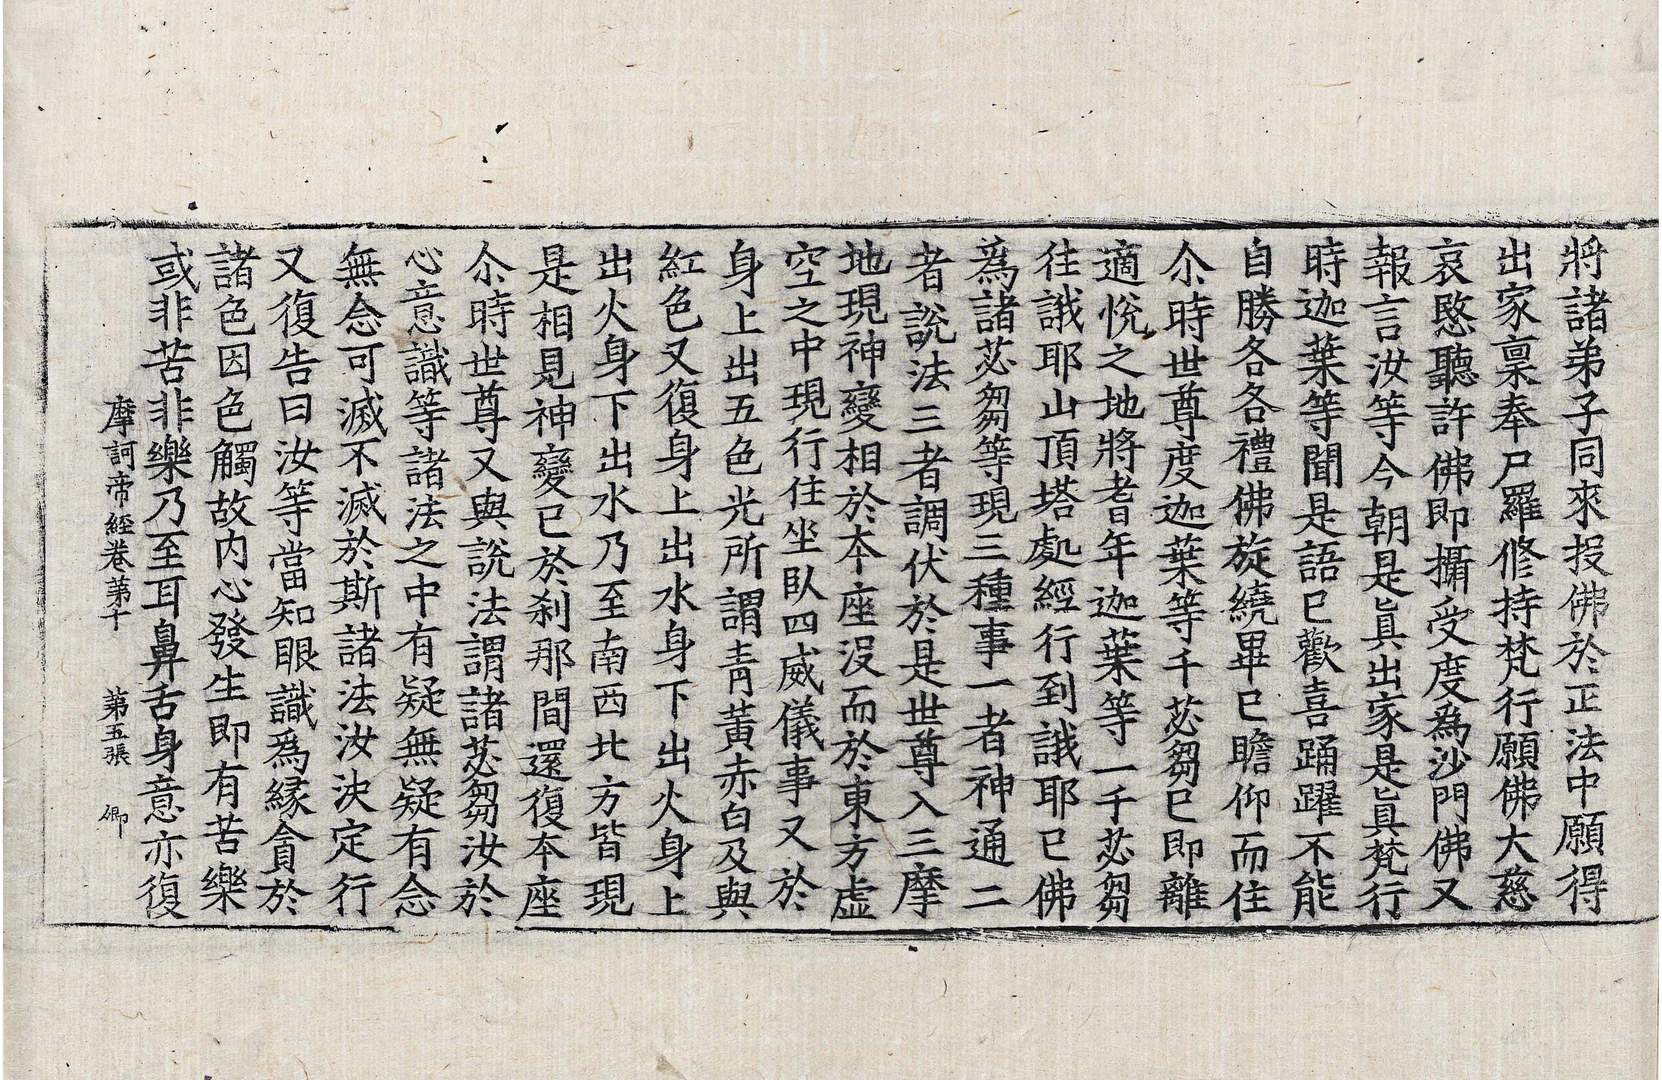 將諸弟子同來投佛於正法中願得
出家稟奉尸羅修持梵行願佛大慈
哀愍聽許佛即攝受度爲沙門佛又
報言汝等今朝是眞出家是眞梵行
時迦葉等聞是語已歡喜踊躍不能
自勝各各禮佛旋繞畢已瞻仰而住
尒時世尊度迦葉等千苾芻已即離
適悅之地將耆年迦葉等一千苾芻
往誐耶山頂塔處經行到誐耶已佛
爲諸苾芻等現三種事一者神通二
者說法三者調伏於是世尊入三摩
地現神變相於本座沒而於東方虛
空之中現行住坐臥四威儀事又於
身上出五色光所謂青黃赤白及與
紅色又復身上出水身下出火身上
出火身下出水乃至南西北方皆現
是相見神變已於刹那間還復本座
尒時世尊又與說法謂諸苾芻汝於
心意識等諸法之中有疑無疑有念
無念可滅不滅於斯諸法汝決定行
又復告曰汝等當知眼識爲緣貪於
諸色因色觸故內心發生即有苦樂
或非苦非樂乃至耳鼻舌身意亦復
摩訶帝經卷第十 第五張 卿